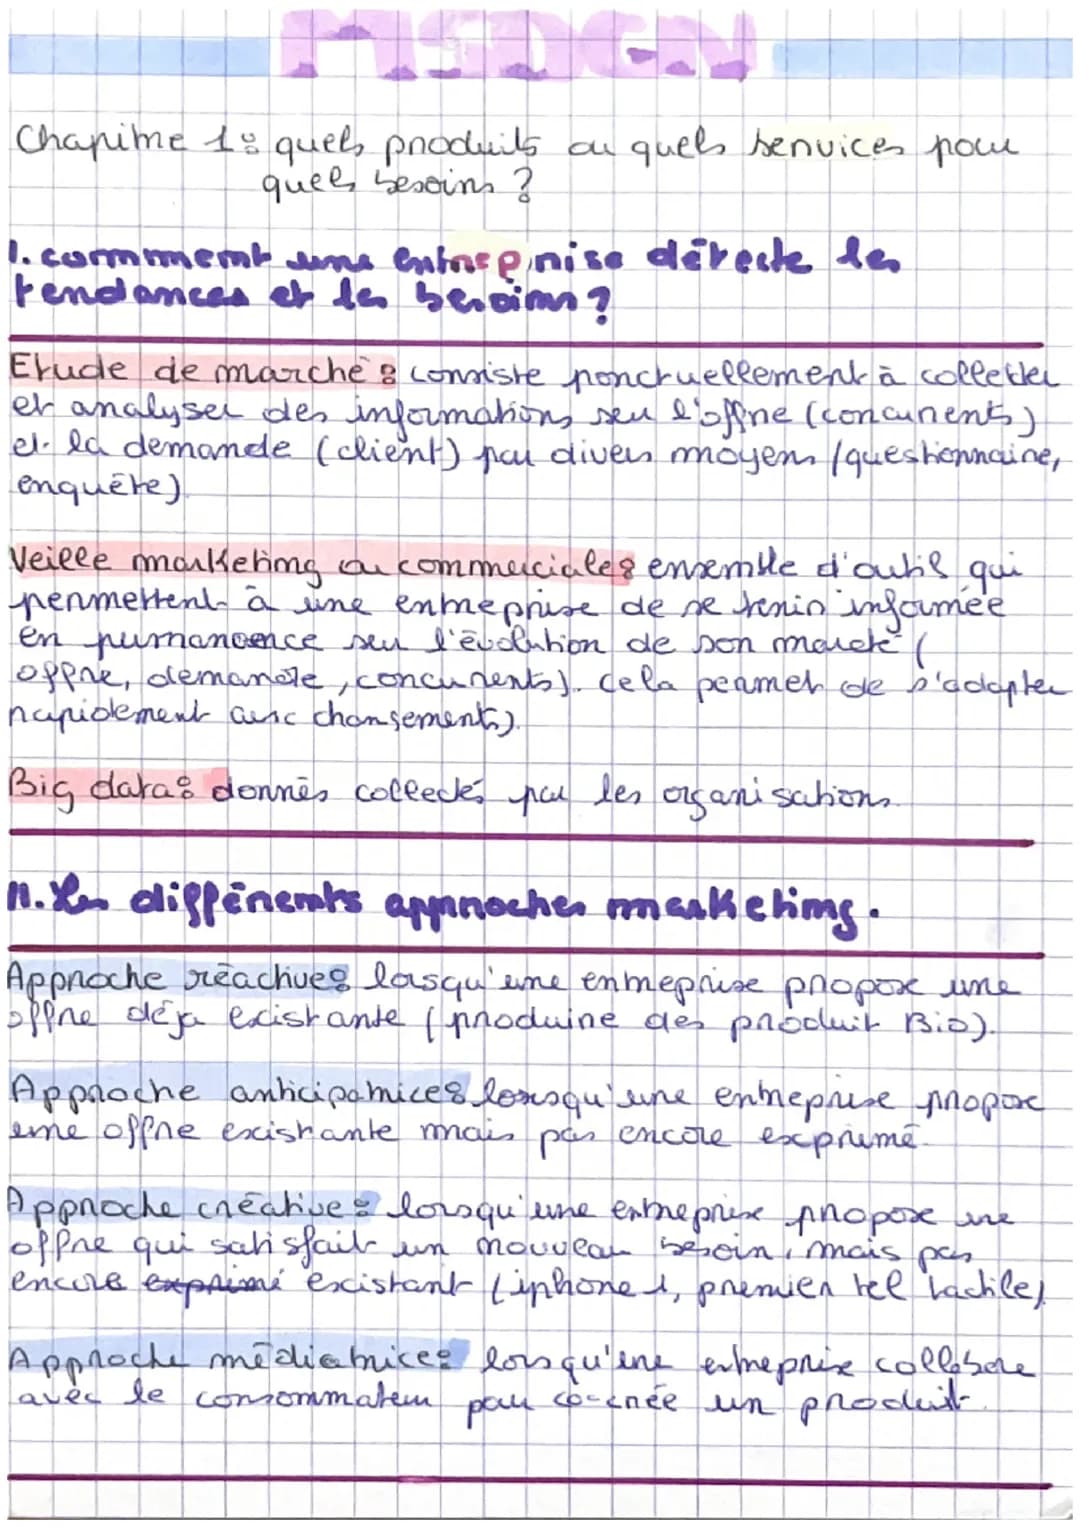 MSDGN
Chapitre 1: quels produits ou quels services pour
quels besoins ?
1. comment une entreprise détecte les
tendances et les besoins ?
Etude de marché : consiste ponctuellement à collecter
et analyser des informations sur l'offre (concurrents)
et la demande (client) par divers moyens (questionnaire,
enquête).
Veille marketing ou commerciale : ensemble d'outil qui
permettent à une entreprise de se tenir informée
en permanence sur l'évolution de son marché (
offre, demande, concurrents). Cela permet de s'adapter
rapidement aux changements).
Big data : donnés collectés par les organisations.
II. Les différents approches marketing.
Approche réactive : lorsqu'une entreprise propose une
offre déja existante (produire des produit Bio).
Approche anticipatrice : lorsqu'une entreprise propose
une offre existante mais pas encore exprimé.
Approche créative : lorsqu'une entreprise propose une
offre qui satisfait un nouveau besoin, mais pas
encore exprimé existant (iphone 1, premier tel tactile)
Approche médiatrice : lorsqu'une entreprise collabore
avec le consommateur pour co-crée un produit.